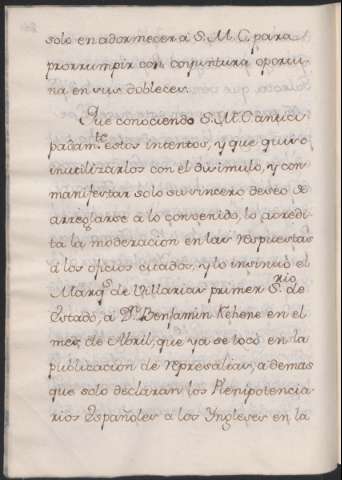 solo en adormecer á S. M. C. para
prorrumpir con conjuntura oportu
na en sus dobleces.
Que conociendo S. M. C. antici
padamte estos intentos, y que quiso
inutilizarlos con el disimulo, y con
manifestar solo su sincero deseo de
arreglarse á lo convenido, lo acredi-
ta la moderacion en las respuestas
á los oficios citados, y lo insinuó el
Marqs de Villarias primer Srio de
Estado, á Dn Benjamin Kehene en el
mes de Abril, que ya se tocó en la
publicacion de represalias, ademas
que solo declaran los Plenipotencia-
rios Españoles a los Yngleses en la